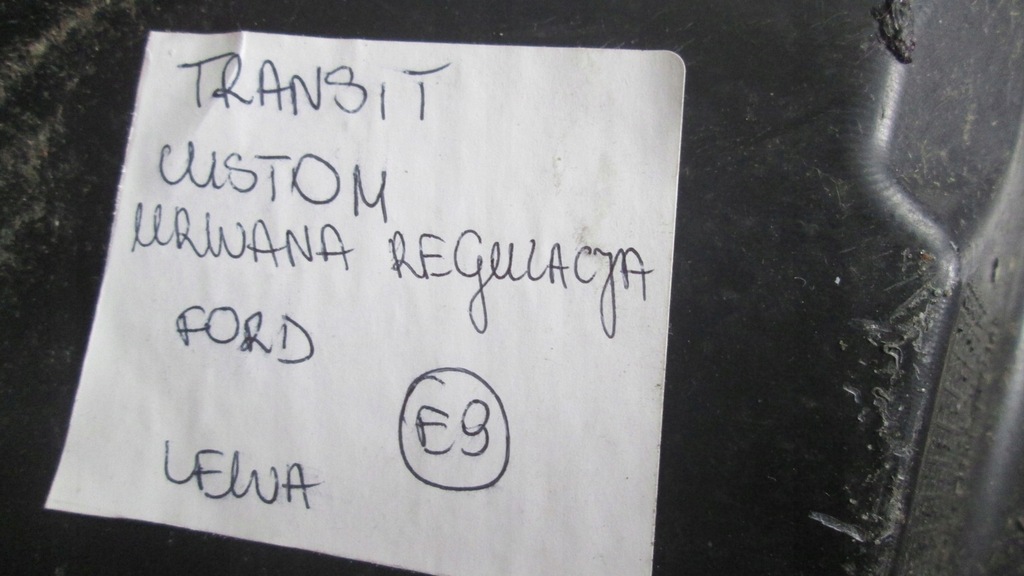 TRANSIT
CUSTOM
URWANA REGULACJA
FORD
E9
LEWA